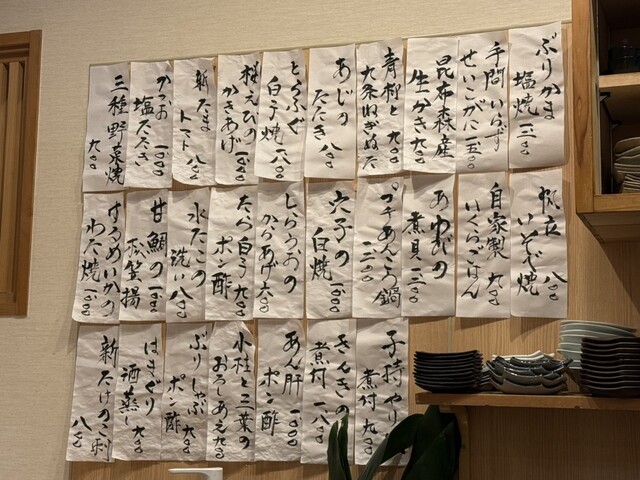 ぶりかま
塩焼
手間いらず
せいこがに
昆布森産
生かき 九〇〇
青柳と
九条ねぎぬた 九〇〇
あじの
たたき 八〇〇
とらふぐ
白子焼 一八〇〇
桜えびの
かきあげ 一〇〇〇
新たま
トマト 八〇〇
かつお
塩たたき 一〇〇〇
三種野菜焼
九〇〇
帆立
いそべ焼 八〇〇
自家製
いくらごはん 九〇〇
あわびの
煮貝
プチあんこう鍋
穴子の
白焼
しらうおの
からあげ 八〇〇
たら白子
ポン酢 九〇〇
水たこの
洗い 八〇〇
甘鯛の
松笠揚 一〇〇〇
するめいかの
わた焼 一〇〇〇
子持やり
煮付 九〇〇
きんきの
煮付 一八〇〇
あん肝
ポン酢 一〇〇〇
小柱と三葉の
おろしあえ 九〇〇
ぶりしゃぶ
ポン酢 九〇〇
はまぐり
酒蒸し 九〇〇
新たけのこ刺
八〇〇